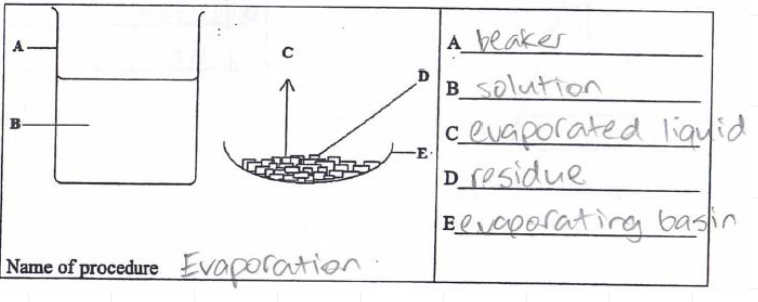 A
B
C
D
E
Name of procedure Evaporation
A beaker
B solution
C evaporated liquid
D residue
E evaporating basin